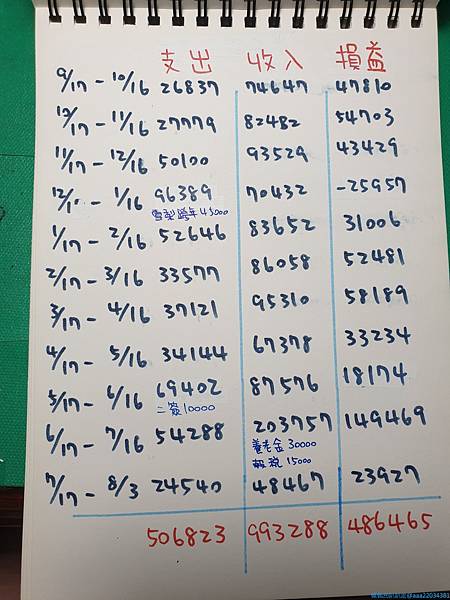 支出 收入 損益
9/17 - 10/16 26837 74647 47810
10/17 - 11/16 27779 82482 54703
11/17 - 12/16 50100 93529 43429
12/17 - 1/16 96389 70432 -25957
雪梨跨年43000
1/17 - 2/16 52646 83652 31006
2/17 - 3/16 33577 86058 52481
3/17 - 4/16 37121 95310 58189
4/17 - 5/16 34144 67378 33234
5/17 - 6/16 69402 87576 18174
二簽10000
6/17 - 7/16 54288 203757 149469
養老金 30000
報稅 15000
7/17 - 8/3 24540 48467 23927
506823 993288 486465
@aaa22034381